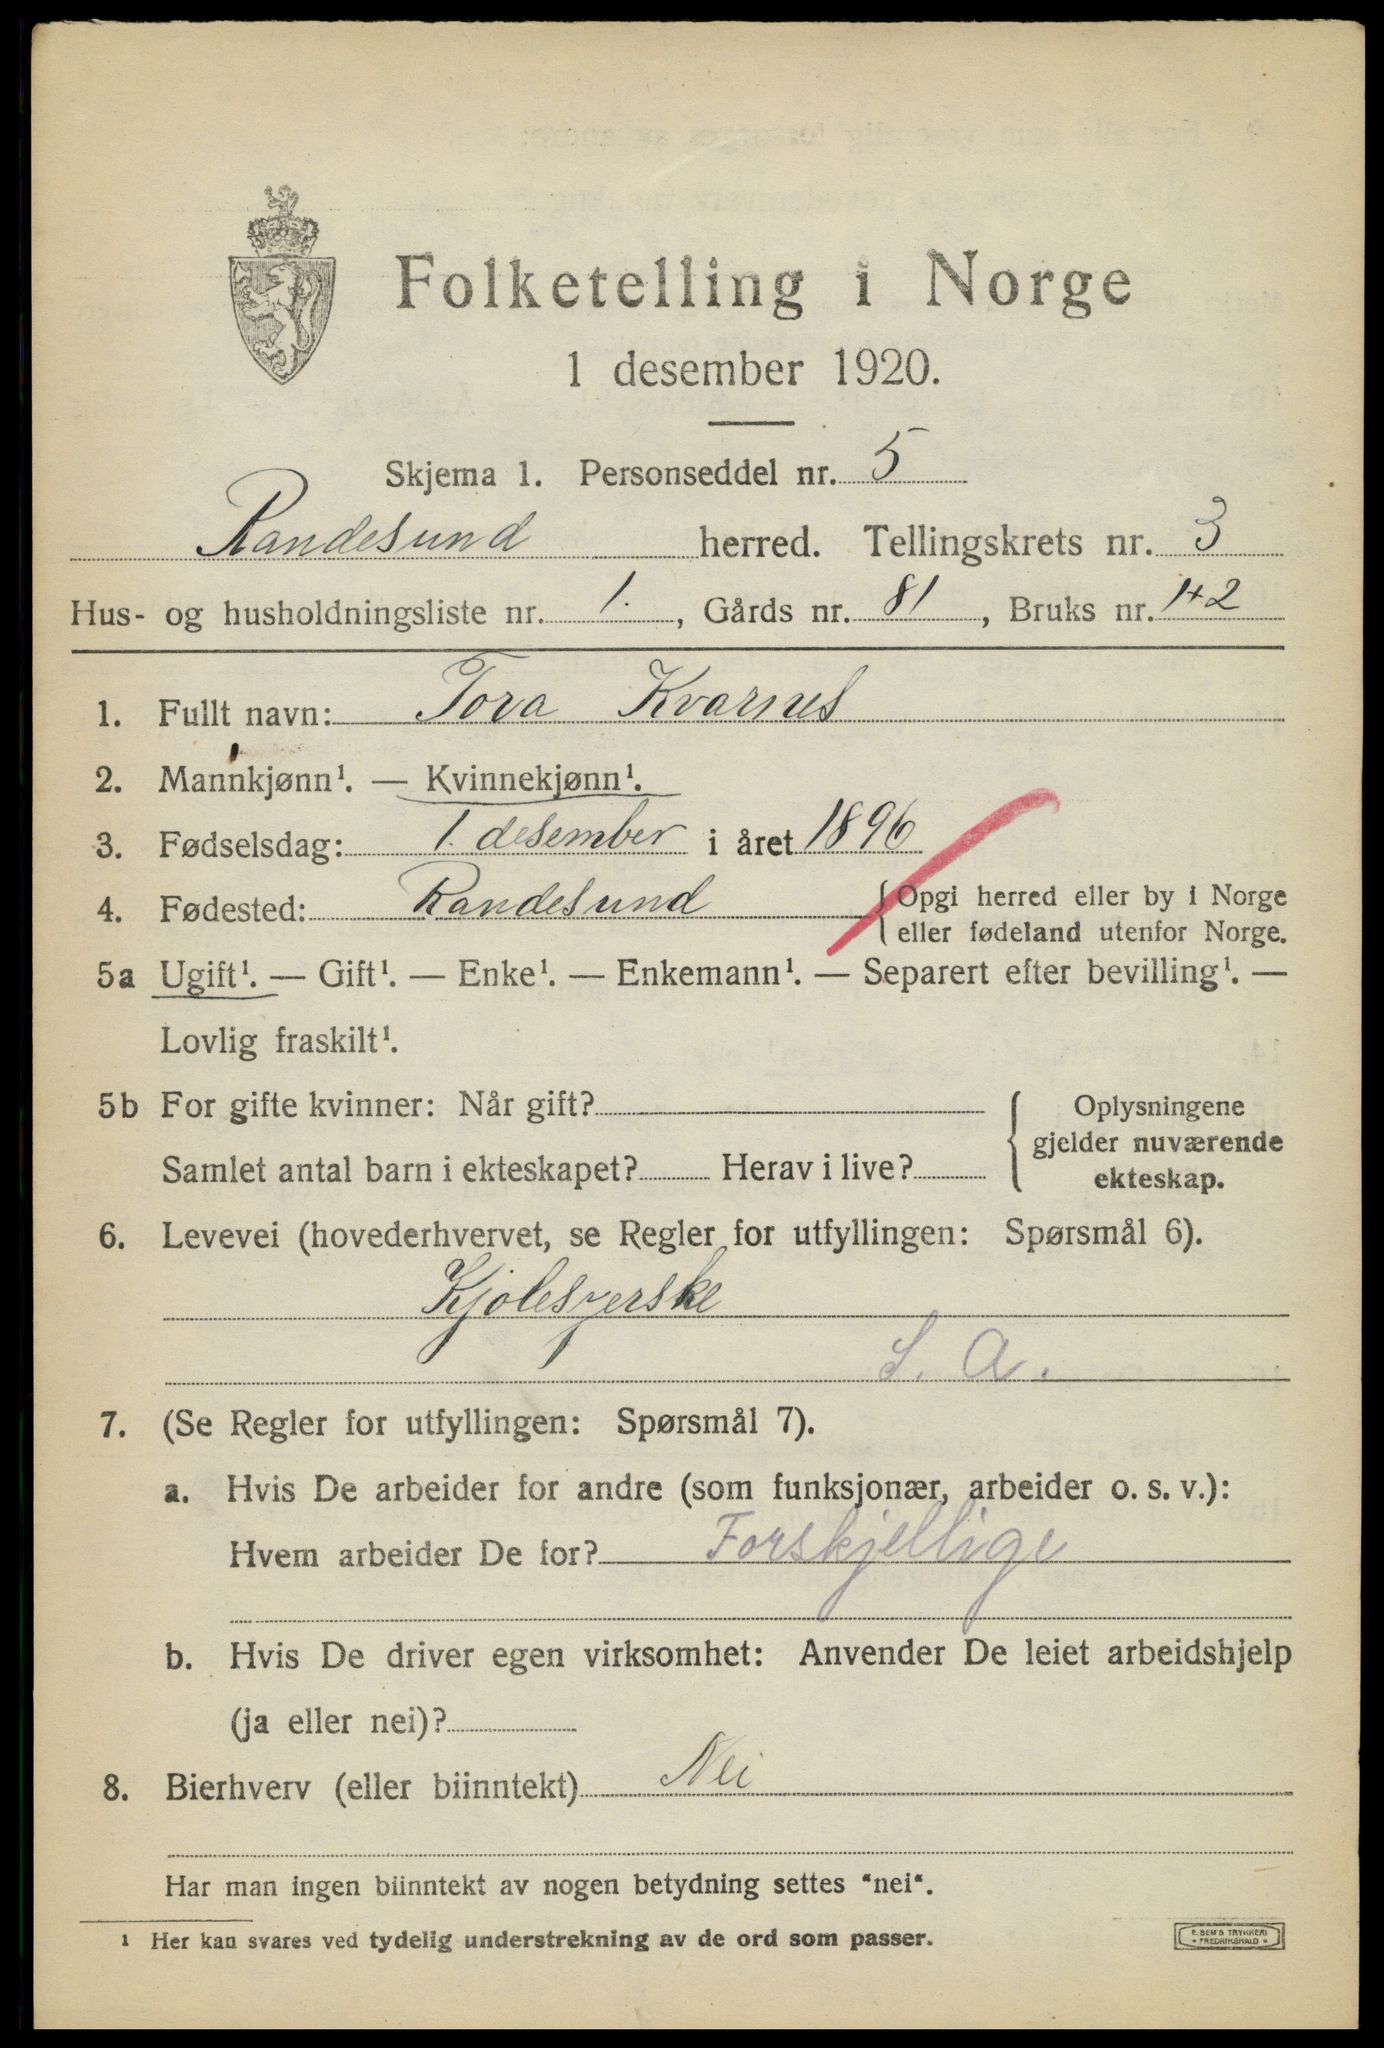 Folketelling i Norge
1 desember 1920.
Skjema 1. Personseddel nr. 5
Randesund herred. Tellingskrets nr. 3
Hus- og husholdningsliste nr. 1., Gårds nr. 81, Bruks nr. 1+2
1. Fullt navn: Tora Kvarnes
2. Mannkjønn¹. — Kvinnekjønn¹.
3. Fødselsdag: 1. desember i året 1896
4. Fødested: Randesund {Opgi herred eller by i Norge
eller fødeland utenfor Norge.
5a Ugift¹. — Gift¹. — Enke¹. — Enkemann¹. — Separert efter bevilling¹. —
Lovlig fraskilt¹.
5b For gifte kvinner: Når gift? { Oplysningene
gjelder nuværende
Samlet antal barn i ekteskapet? Herav i live?
ekteskap.
6. Levevei (hovederhvervet, se Regler for utfyllingen: Spørsmål 6).
Kjolesyerske
S. A.
7. (Se Regler for utfyllingen: Spørsmål 7).
a. Hvis De arbeider for andre (som funksjonær, arbeider o. s. v.):
Hvem arbeider De for? Forskjellige
b. Hvis De driver egen virksomhet: Anvender De leiet arbeidshjelp
(ja eller nei)?
8. Bierhverv (eller biinntekt) Nei
Har man ingen biinntekt av nogen betydning settes "nei".
¹ Her kan svares ved tydelig understrekning av de ord som passer.
E. SEM'S TRYKKERI
* FREDRIKSHALD *